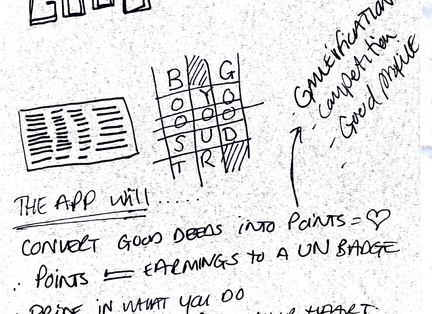 B G
O Y O
O O O
S U D
T R
GAMEIFICATION
- COMPETITION
- GOOD PROFILE
THE APP WILL .....
CONVERT GOOD DEEDS INTO POINTS = ♡
POINTS = EARNINGS TO A UN BADGE
PRIDE IN WHAT YOU DO
HEART